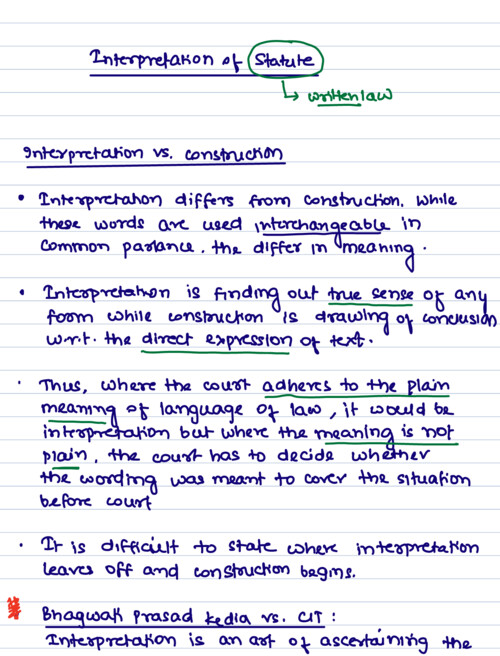 Interpretation of Statute
↳ written law
Interpretation vs. construction
• Interpretation differs from construction. While
these words are used interchangeable in
common parlance. the differ in meaning.
• Interpretation is finding out true sense of any
form while construction is drawing of conclusion
w.r.t. the direct expression of text.
• Thus, where the court adheres to the plain
meaning of language of law, it would be
interpretation but where the meaning is not
plain, the court has to decide whether
the wording was meant to cover the situation
before court
• It is difficult to state where interpretation
leaves off and construction begins.
Bhagwati Prasad Kedia vs. CIT :
Interpretation is an art of ascertaining the